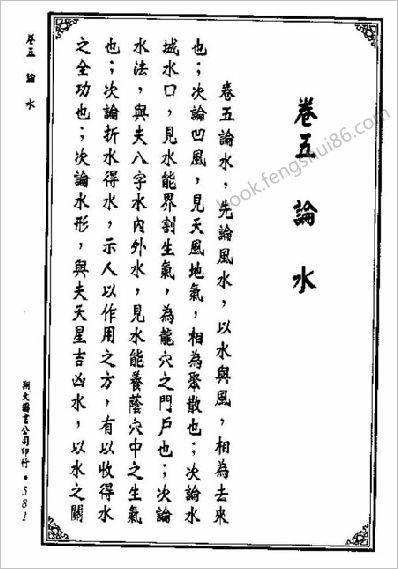 卷五 論水
卷五論水，先論風水，以水與風，相為去來
也；次論凹風，見天風地氣，相為聚散也；次論水
城水口，見水能界割生氣，為龍穴之門戶也；次論
水法，與夫八字水內外水，見水能養蔭穴中之生氣
也；次論折水得水，示人以作用之方，有以收得水
之全功也；次論水形，與夫天星吉凶水，以水之關
卷五 論水
翔文圖書公司印行•581
book.fengshui86.com